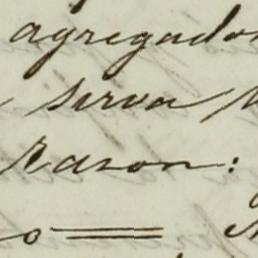 agregado
serva
razon: